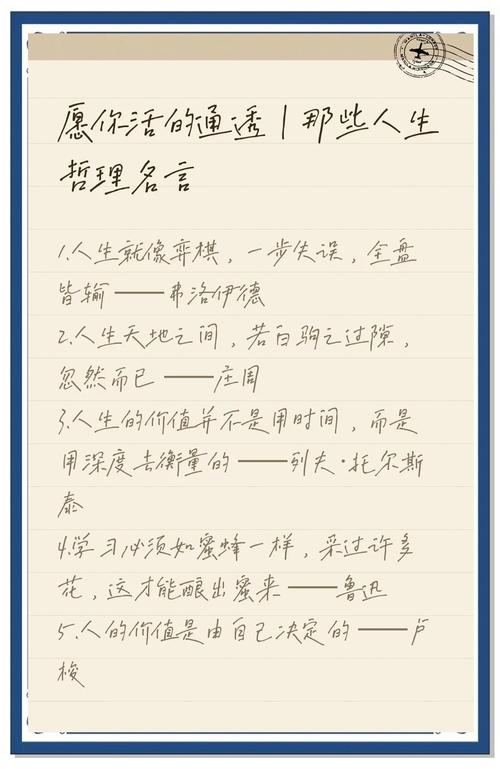 愿你活的通透 | 那些人生
哲理名言
1.人生就像弈棋，一步失误，全盘
皆输 ——弗洛伊德
2.人生天地之间，若白驹之过隙，
忽然而已 ——庄周
3.人生的价值并不是用时间，而是
用深度去衡量的 ——列夫·托尔斯
泰
4.学习必须如蜜蜂一样，采过许多
花，这才能酿出蜜来 ——鲁迅
5.人的价值是由自己决定的 ——卢
梭